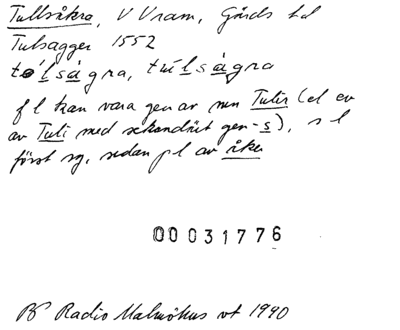 Tullsåkra, V Vram, Gärds hd
Tulsagger 1552
tólságra, túlságra
f l kan vara gen av mn Tulir (el ev
av Tuli med sekundärt gen-s), s l
först sg, sedan pl av åker
00031776
BP Radio Malmöhus vt 1990